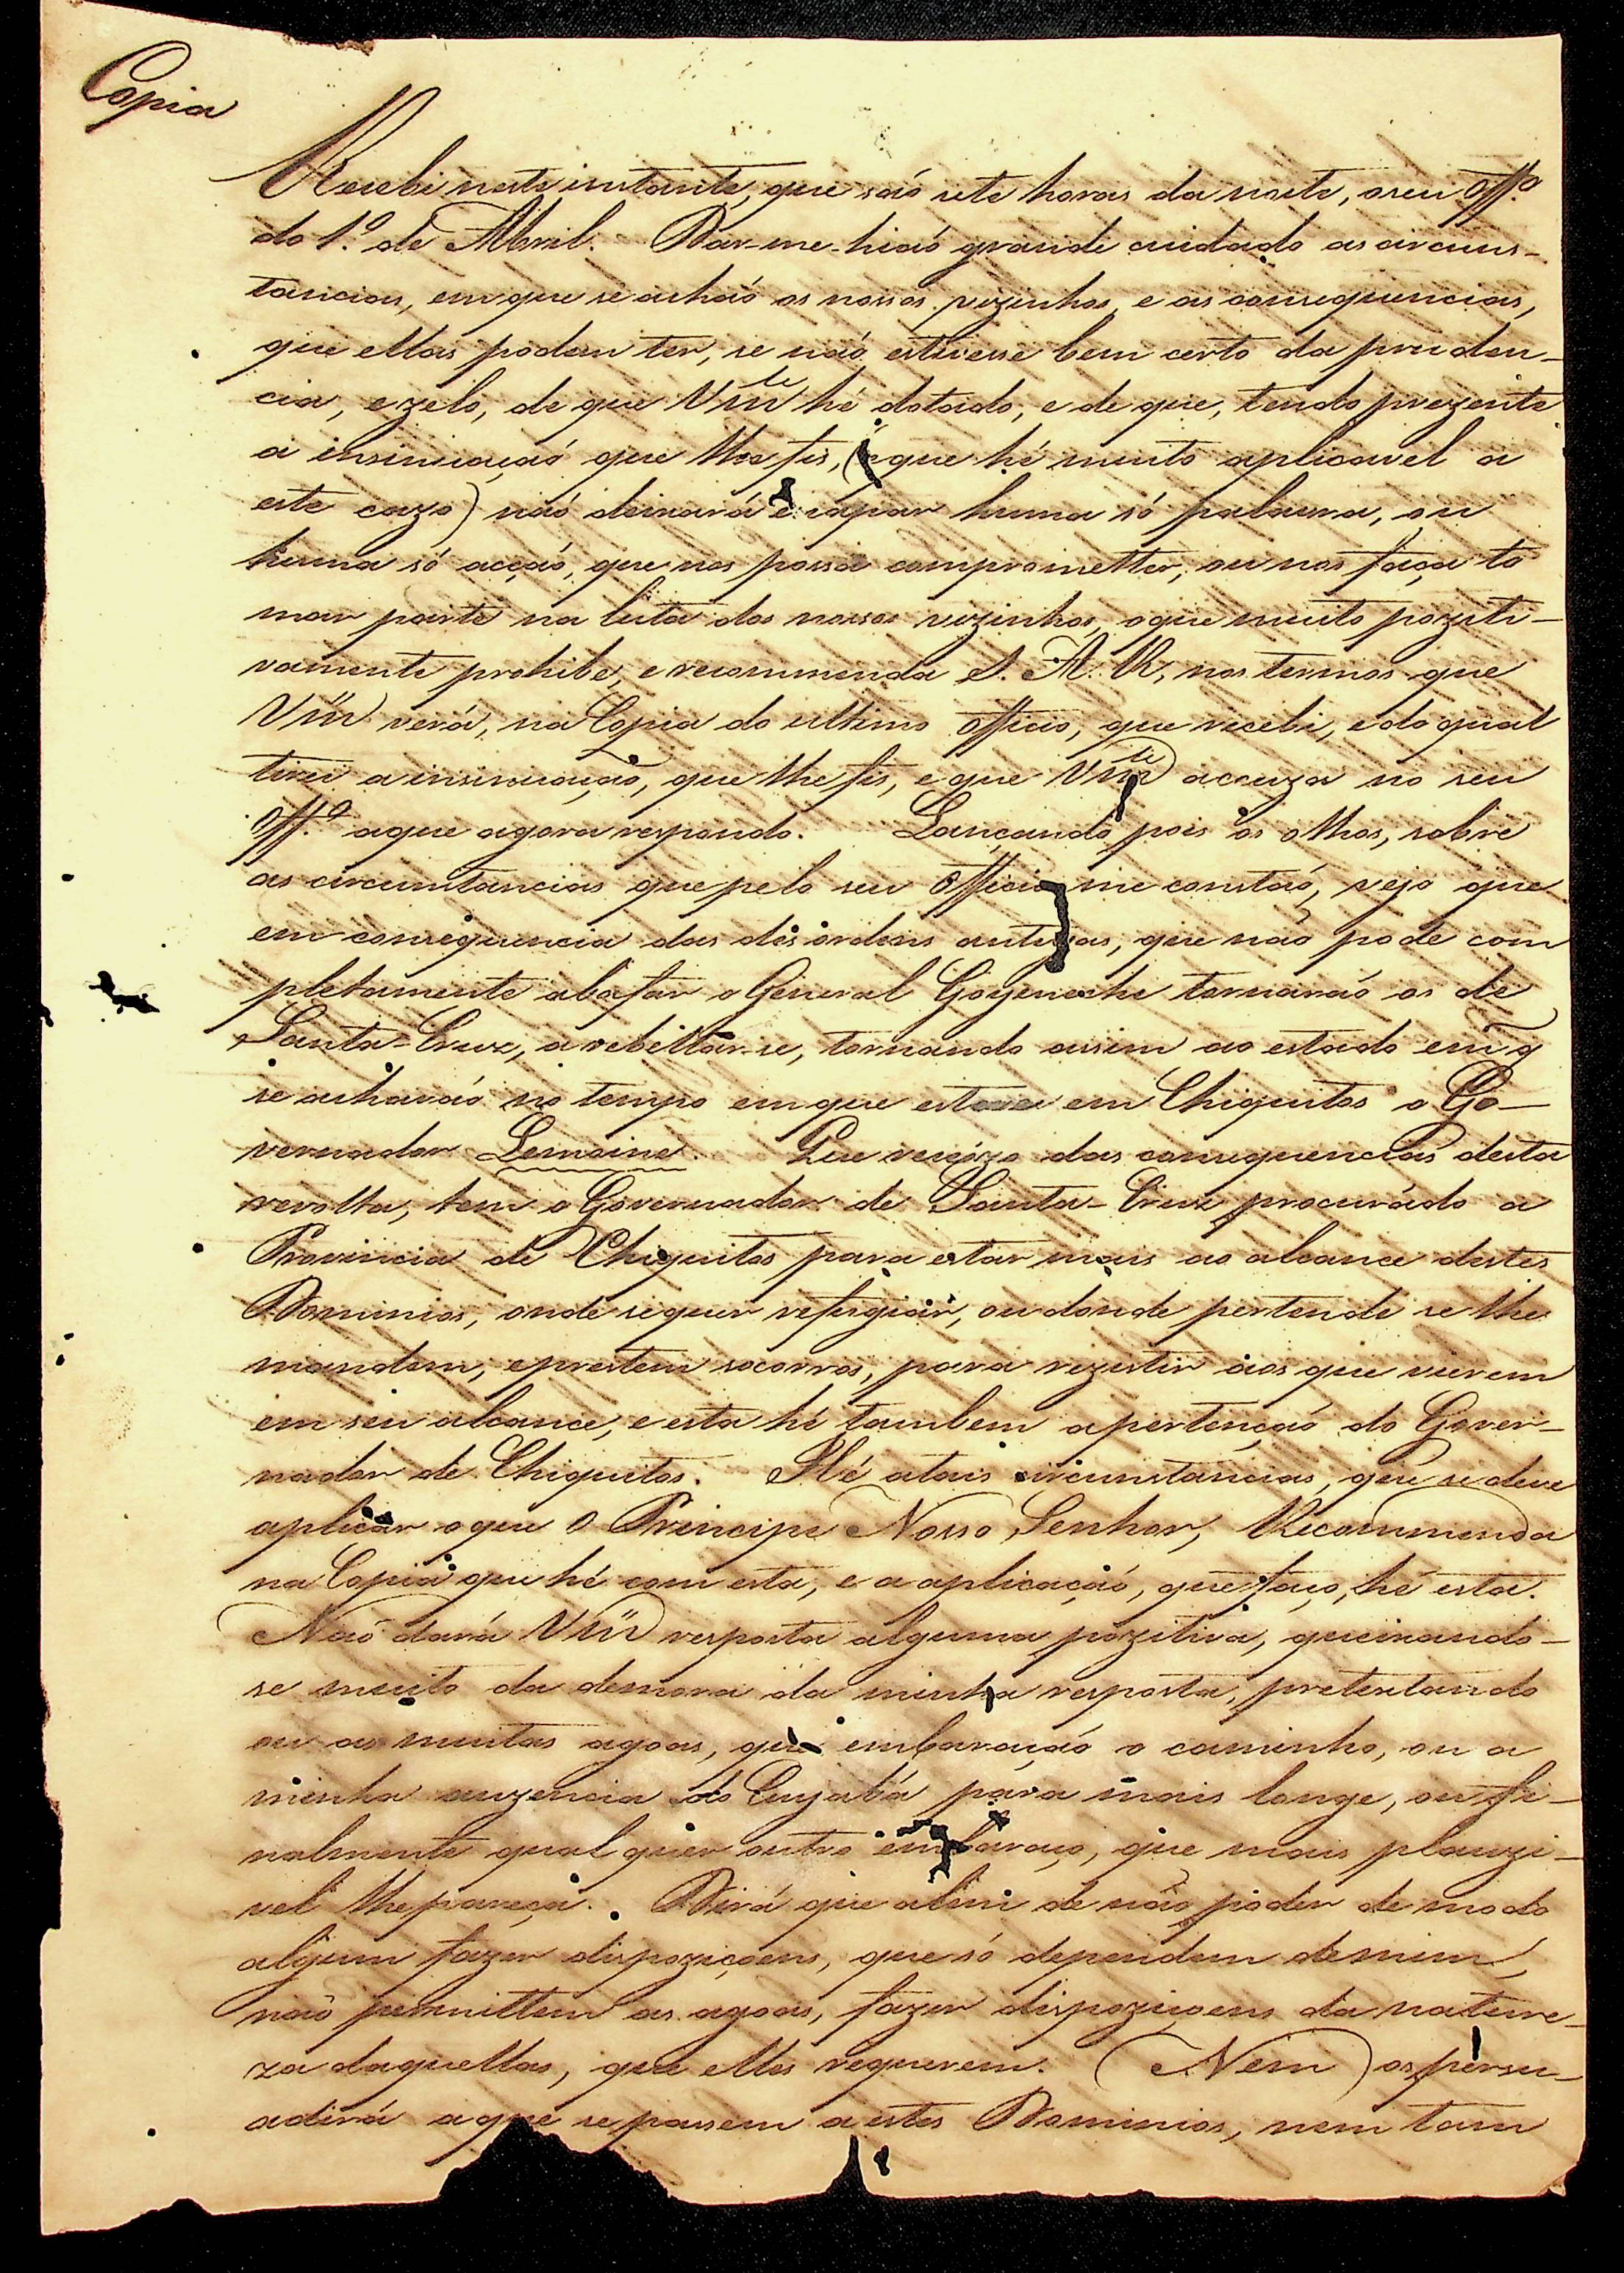 Copia
Recebi neste instante, que saõ sete horas da noite, o seu Off.º
do 1.º de Abril. Dar-me-hiaõ grande cuidado as circuns-
tancias, em que se achaõ os nossos vezinhos, e as consequencias,
que ellas podem ter, se naõ estivesse bem certo da pruden-
cia, e zelo, de que Vm.ce hé dotado, e de que, tendo prezente
a insinuaçaõ que lhe fis, (e que hé muito aplicavel a
este cazo) naõ deixará escapar huma só palavra, ou
huma só acçaõ, que nos possa comprometter, ou nos faça to
mar parte na luta dos nossos vezinhos, o que muito poziti-
vamente prohibe, e recommenda S. A. R, nos termos que
Vm.ce verá, na Copia do ultimo Officio, que recebi, e do qual
tirei a insinuaçaõ, que lhe fis, e que Vm.ce acuza no seu
Off.º a que agora respondo. Lançando pois os olhos, sobre
as circunstancias que pelo seu Officio me constaõ, vejo que
em consequencia das dis ordens antigas, que naõ pode com
pletamente abafar o General Goyeneche tornaraõ os de
Santa-Cruz, a rebellar-se, tornando assim ao estado em q̃
se acharaõ no tempo em que esteve em Chiquitos o Go-
vernador Lemoine. Que receizo das consequencias desta
revolta, tem o Governador de Santa-Cruz procurado a
Provincia de Chiquitos para estar mais ao alcance destes
Dominios, onde se quer refugiar, ou donde pertende se lhe
mandem, e prestem socorros, para rezistir aos que vierem
em seu alcance, e esta hé tambem a pertençaõ do Gover-
nador de Chiquitos. Hé a tais circunstancias, que se deve
aplicar o que O Principe Nosso Senhor, Recommenda
na Copia que hé com esta, e a aplicaçaõ, que faço, hé esta.
Naõ dará Vm.ce resposta alguma pozitiva, queixando-
se muito da demora da minha resposta, pretextando
ou as muitas agoas, que embaraçaõ o caminho, ou a
minha auzencia do Cuyabá para mais longe, ou fi-
nalmente qual quer outro embaraço, que mais plauzi-
vel lhe pareça. Dirá que alem de naõ poder de modo
algum fazer dispoziçoens, que só dependem de mim,
naõ permittem as agoas, fazer dispoziçoens da nature-
za daquellas, que elles requerem. (Nem) os persu-
adirá a que se passem a estes Dominios, nem tam